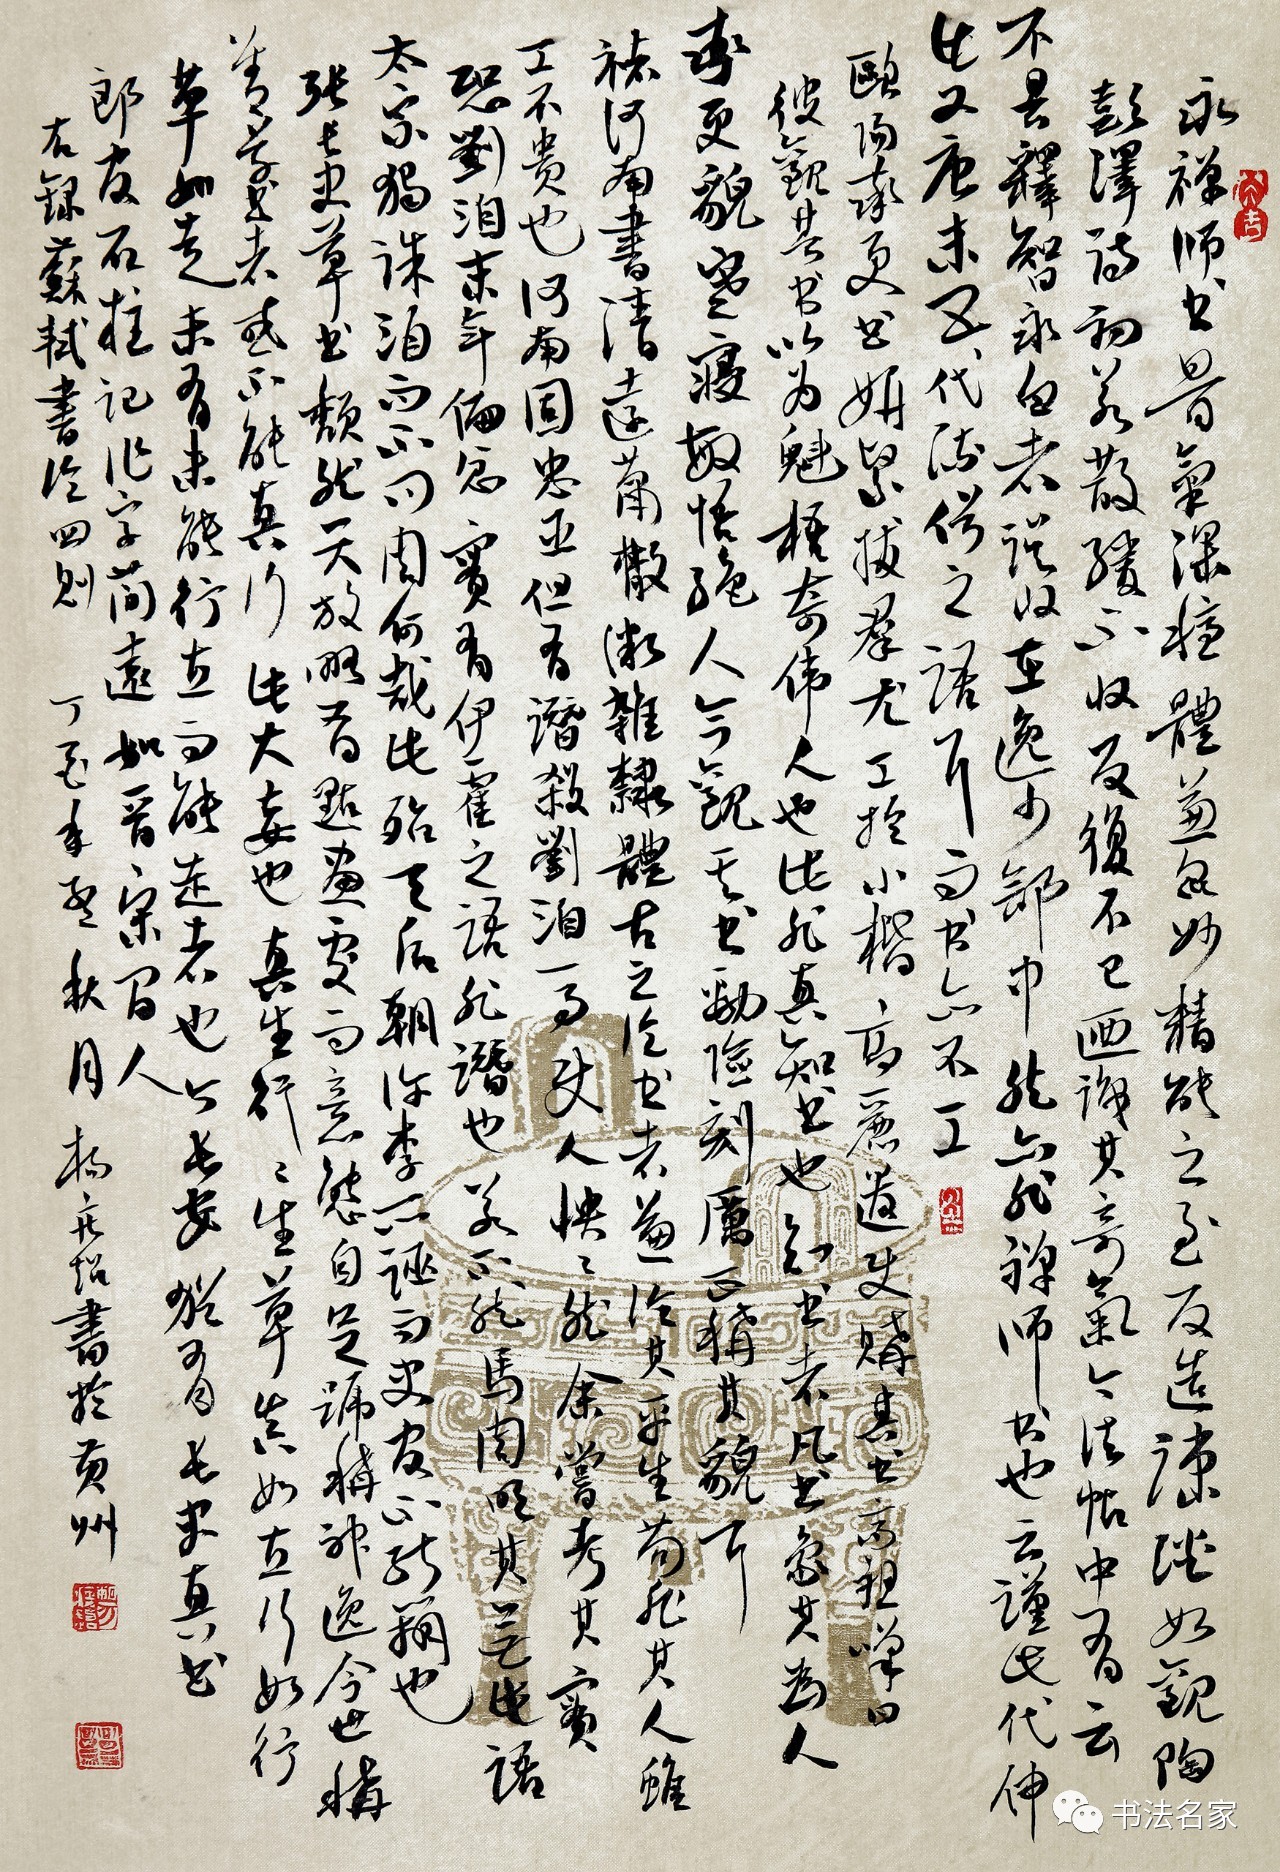 永禅师书骨氣深穩體兼众妙精能之至反造疎淡如觀陶
彭澤詩初若散緩不收反復不已廼識其奇氣今法帖中有云
不具釋智永白者誤收在逸少部中然亦非禅师书也云謹此代伸
此又唐末五代流俗之语耳而书亦不工
歐陽率更书妍緊拔群尤工於小楷高麗遣使購其书高祖嘆曰
彼觀其书以为魁梧奇偉人也此非真知书也知书者凡书象其为人
率更貌寒寝敏悟绝人今觀其书勁險刻厲正稱其貌耳
褚河南書清遠萧散微雜隸體古之论书者兼论其平生苟非其人雖
工不贵也河南固忠臣但有譖殺劉洎一事使人怏怏然余嘗考其實
恐劉洎末年偏忿實有伊霍之語非譖也若不然馬周明其无此語
太宗獨誅洎而不问周何哉此殆天后朝许李所诬而史官不能辨也
张长史草书颓然天放略有點画處而意態自足號稱神逸今世稱
善草书者或不能真行此大妄也真生行行生草真如立行如行
草如走未有未能行立而能走者也今长安猶有长史真书
郎官石柱记作字简遠如晋宋间人
右録蘇軾書论四则
丁酉年 秋月 楊 書於黄州
书法名家